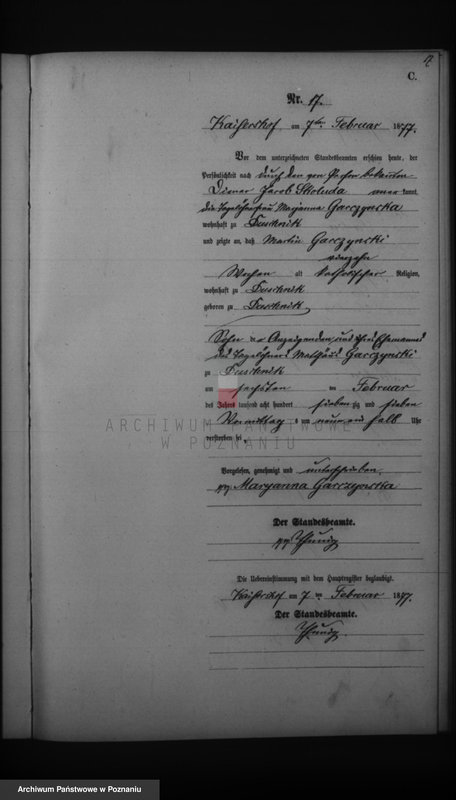 C.
Nr. 17.
Kaisershof am 7ten Februar 1877.
Vor dem unterzeichneten Standesbeamten erschien heute, der
Persönlichkeit nach durch den
Diener Jacob kannt,
die Tagelöhnerfrau Maryanna Garczynska
wohnhaft zu Duschnik
und zeigte an, daß Martin Garczynski
vierzehn
Wochen alt katholischer Religion,
wohnhaft zu Duschnik
geboren zu Duschnik
Sohn der Anzeigenden, und ihres Ehemannes
des Tagelöhners Garczynski
zu Duschnik
am sechsten ten Februar
des Jahres tausend acht hundert siebenzig und sieben
Vormittag s um neun ein halb Uhr
verstorben sei.
Vorgelesen, genehmigt und unterschrieben.
gez Maryanna Garczynska
Der Standesbeamte.
gez
Die Uebereinstimmung mit dem Hauptregister beglaubigt.
Kaisershof am 7 ten Februar 1877.
Der Standesbeamte.
ARCHIWUM PAŃSTWOWE
W POZNANIU
Archiwum Państwowe w Poznaniu